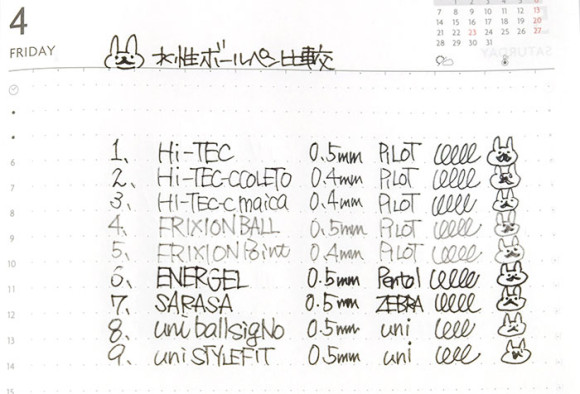 4
FRIDAY
7 8 9 10 11 12 13
14 15 16 17 18 19 20
21 22 23 24 25 26 27
28 29 30 31
SATURDAY
水性ボールペン比較
1. Hi-TEC 0.5mm PILOT
2. Hi-TEC-C COLETO 0.4mm PILOT
3. HI-TEC-C maica 0.4mm PILOT
4. FRIXION BALL 0.5mm PILOT
5. FRIXION Point 0.4mm PILOT
6. ENERGEL 0.5mm Pentel
7. SARASA 0.5mm ZEBRA
8. uni ball sigNo 0.5mm uni
9. uni STYLE FIT 0.5mm uni
6
7
8
9
10
11
12
13
14
15